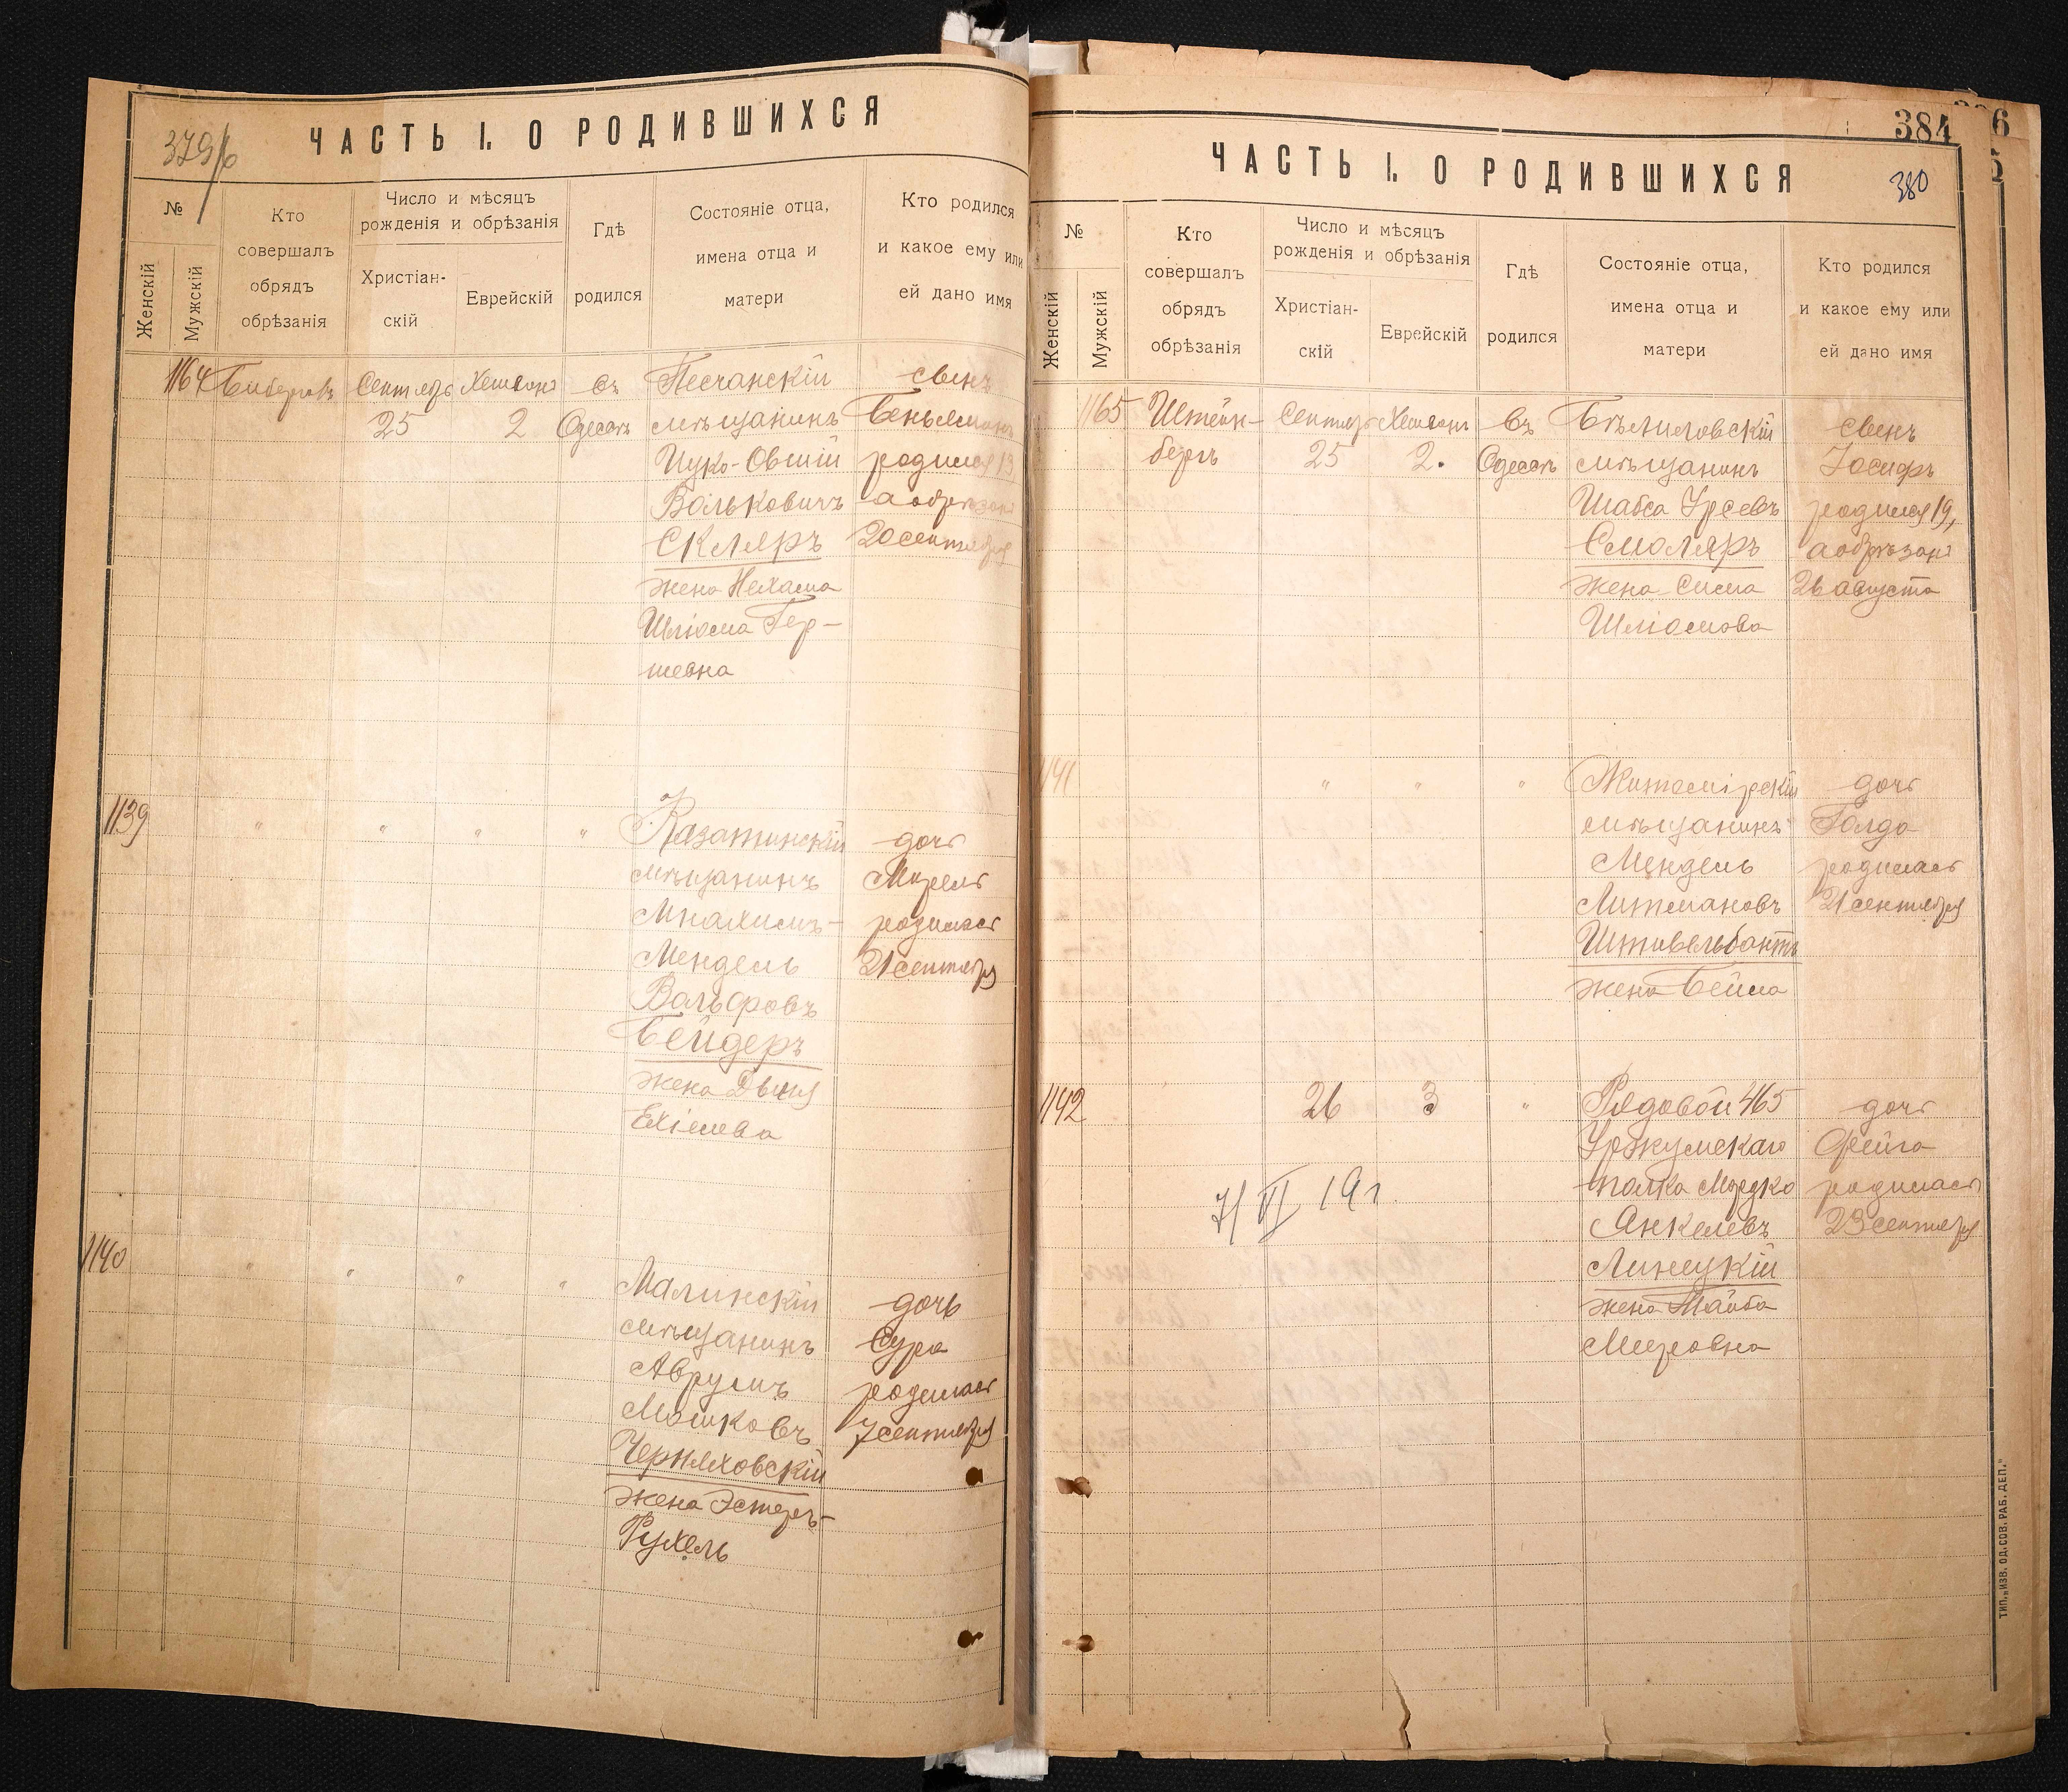 379/б
ЧАСТЬ I. О РОДИВШИХСЯ
№
Женскій
Мужскій
Кто
совершалъ
обрядъ
обрѣзанія
Число и мѣсяцъ
рожденія и обрѣзанія
Христіан-
скій
Еврейскій
Гдѣ
родился
Состояніе отца,
имена отца и
матери
Кто родился
и какое ему или
ей дано имя
1164
Сентябрь
25
Хешванъ
2
въ
Одессѣ
Песчанскій
мѣщанинъ
Ицко-Овшій
Вольковичъ
Скляръ
жена Нехама
Шліома Гер-
шевна
сынъ
Беньяминъ
родился 13
а обрѣзанъ
20 сентября
1139
"
"
"
"
Казатинскій
мѣщанинъ
Мнахимъ-
Мендель
Вольфовъ
Бейдеръ
жена Двися
Ехіелева
дочь
Мирель
родилась
21 сентября
1140
"
"
"
"
Малинскій
мѣщанинъ
Аврумъ
Мошковъ
Черняховскій
жена Эстеръ-
Рухель
дочь
Сура
родилась
7 сентября
384
380
ЧАСТЬ I. О РОДИВШИХСЯ
№
Женскій
Мужскій
Кто
совершалъ
обрядъ
обрѣзанія
Число и мѣсяцъ
рожденія и обрѣзанія
Христіан-
скій
Еврейскій
Гдѣ
родился
Состояніе отца,
имена отца и
матери
Кто родился
и какое ему или
ей дано имя
1165
Штейн-
бергъ
Сентябрь
25
Хешванъ
2.
въ
Одессѣ
Бѣлиловскій
мѣщанинъ
Шабса Урсевъ
Смоляръ
жена Сима
Шліомова
сынъ
Іосифъ
родился 19,
а обрѣзанъ
26 августа
1141
"
"
"
Житомірскій
мѣщанинъ
Мендель
Литмановъ
Штивельбантъ
жена Бейла
дочь
Голда
родилась
21 сентября
1142
26
3
"
Рядовой 465
Уржумскаго
полка Мордко
Янкелевъ
Линецкій
жена Майба
Мееровна
дочь
Фейга
родилась
23 сентября
7/VI 19г.
ТИП. „ИЗВ. ОД. СОВ. РАБ. ДЕП."